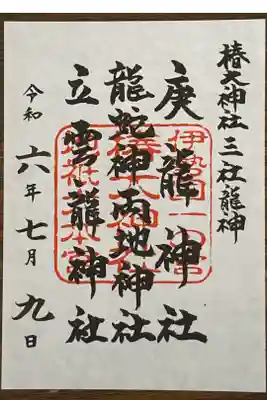 椿大神社三社龍神
庚龍神社
龍蛇神雨地神社
立雲龍神社
令和六年七月九日
伊勢国一の宮